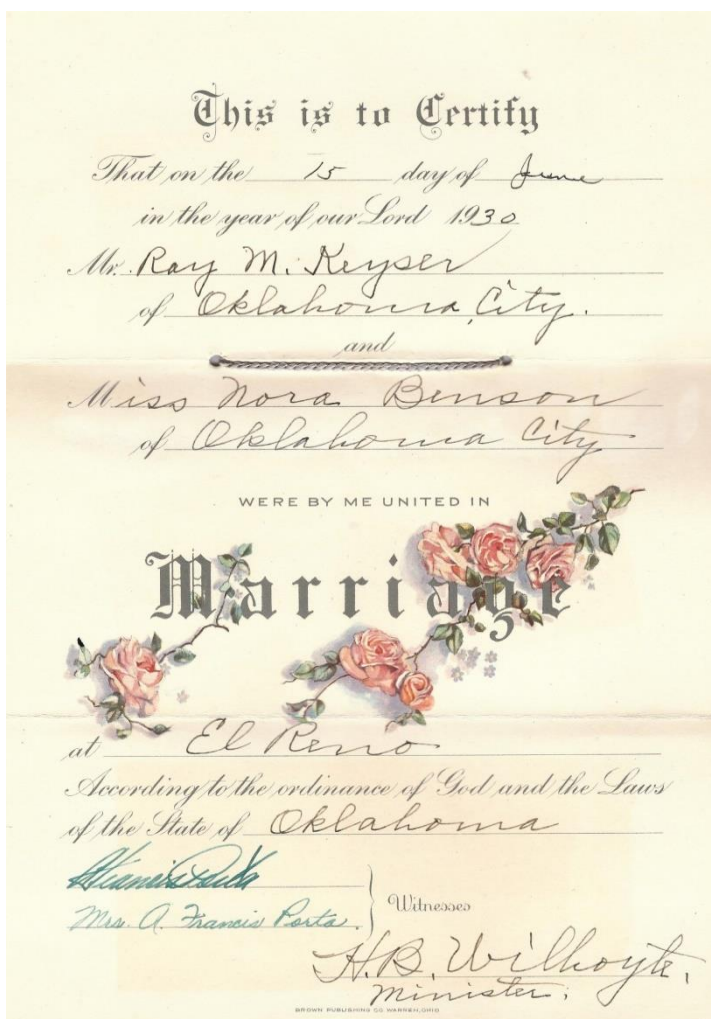 This is to Certify
That on the 15 day of June
in the year of our Lord 1930
Mr. Ray M. Keyser
of Oklahoma City.
and
Miss Nora Benson
of Oklahoma City
WERE BY ME UNITED IN
Marriage
at El Reno
According to the ordinance of God and the Laws
of the State of Oklahoma
Mrs. A. Francis Porta.
Witnesses
H. B. Wilhoyte,
Minister.
BROWN PUBLISHING CO. WARREN, OHIO